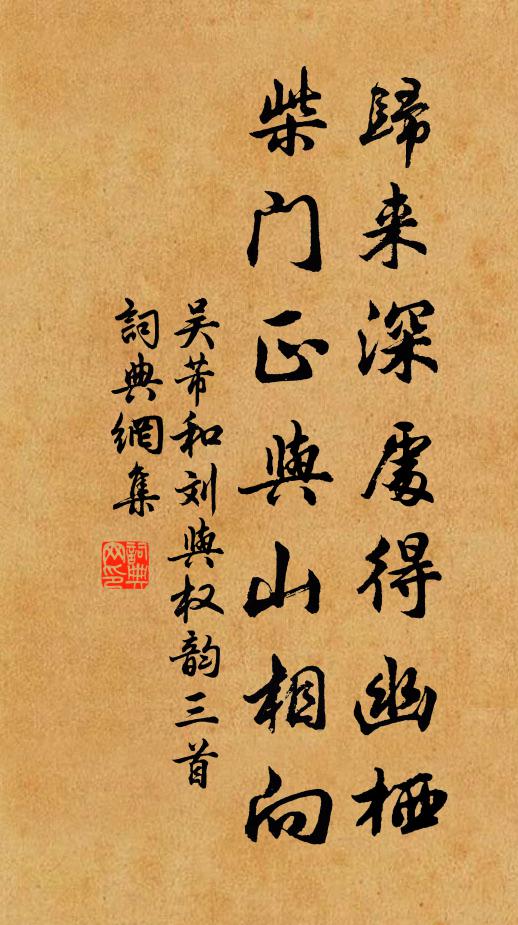 歸来深處得幽栖
柴门正與山相向
吴芾和刘與权韵三首
詞典網集
詞典網印